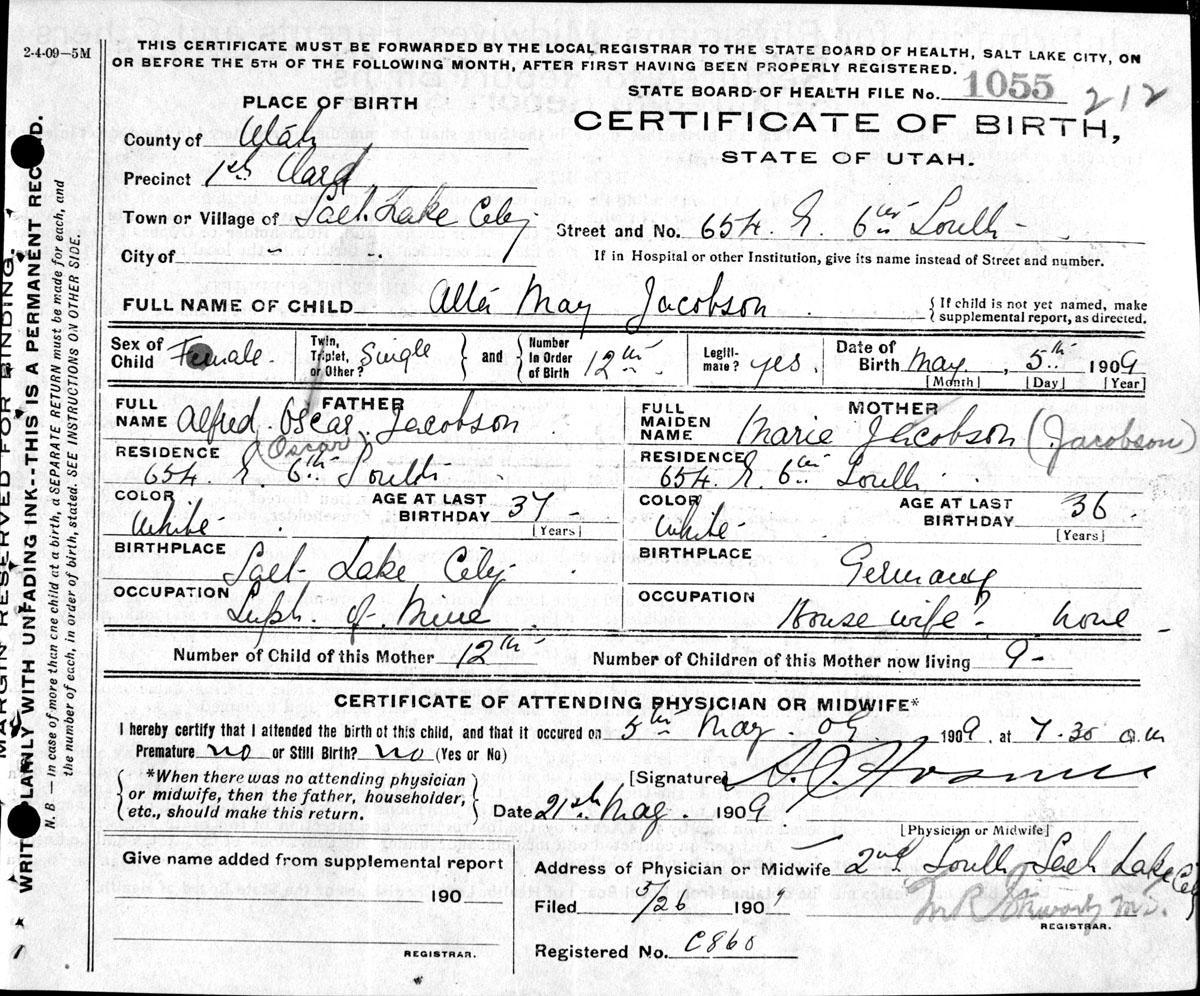 2-4-09—5M
THIS CERTIFICATE MUST BE FORWARDED BY THE LOCAL REGISTRAR TO THE STATE BOARD OF HEALTH, SALT LAKE CITY, ON
OR BEFORE THE 5TH OF THE FOLLOWING MONTH, AFTER FIRST HAVING BEEN PROPERLY REGISTERED.
STATE BOARD OF HEALTH FILE No. 1055 212
PLACE OF BIRTH
CERTIFICATE OF BIRTH,
STATE OF UTAH.
County of Utah
Precinct 1st Ward
Town or Village of Salt Lake City
Street and No. 654. E. 6th South
City of
If in Hospital or other Institution, give its name instead of Street and number.
FULL NAME OF CHILD May Jacobson
{ If child is not yet named, make supplemental report, as directed.
Sex of Child Female. Twin, Triplet, or Other? Single } and { Number in Order of Birth 12th Legiti-mate? yes. Date of Birth May 5th 1909
[Month] [Day] [Year]
FATHER
FULL NAME Alfred Oscar Jacobson
(Oscar)
RESIDENCE 654. E 6th South
COLOR White AGE AT LAST BIRTHDAY 37 [Years]
BIRTHPLACE Salt Lake City
OCCUPATION Supt. of Mine
MOTHER
FULL MAIDEN NAME Marie Jacobson (Jacobson)
RESIDENCE 654. E. 6th South
COLOR White AGE AT LAST BIRTHDAY 36 [Years]
BIRTHPLACE Germany
OCCUPATION House wife? none
Number of Child of this Mother 12th Number of Children of this Mother now living 9
CERTIFICATE OF ATTENDING PHYSICIAN OR MIDWIFE*
I hereby certify that I attended the birth of this child, and that it occured on 5th May. 09 1909, at 7.30 a.m
Premature no or Still Birth? no (Yes or No)
{ *When there was no attending physician
or midwife, then the father, householder,
etc., should make this return. }
[Signature]
Date 21st May. 1909
[Physician or Midwife]
Give name added from supplemental report
190
REGISTRAR.
Address of Physician or Midwife 2nd South Salt Lake City
Filed 5/26 1909
M.D.
REGISTRAR.
Registered No. C860
MARGIN RESERVED FOR BINDING.
WRITE PLAINLY WITH UNFADING INK--THIS IS A PERMANENT RECORD.
N. B.—In case of more than one child at a birth, a SEPARATE RETURN must be made for each, and
the number of each, in order of birth, stated. SEE INSTRUCTIONS ON OTHER SIDE.